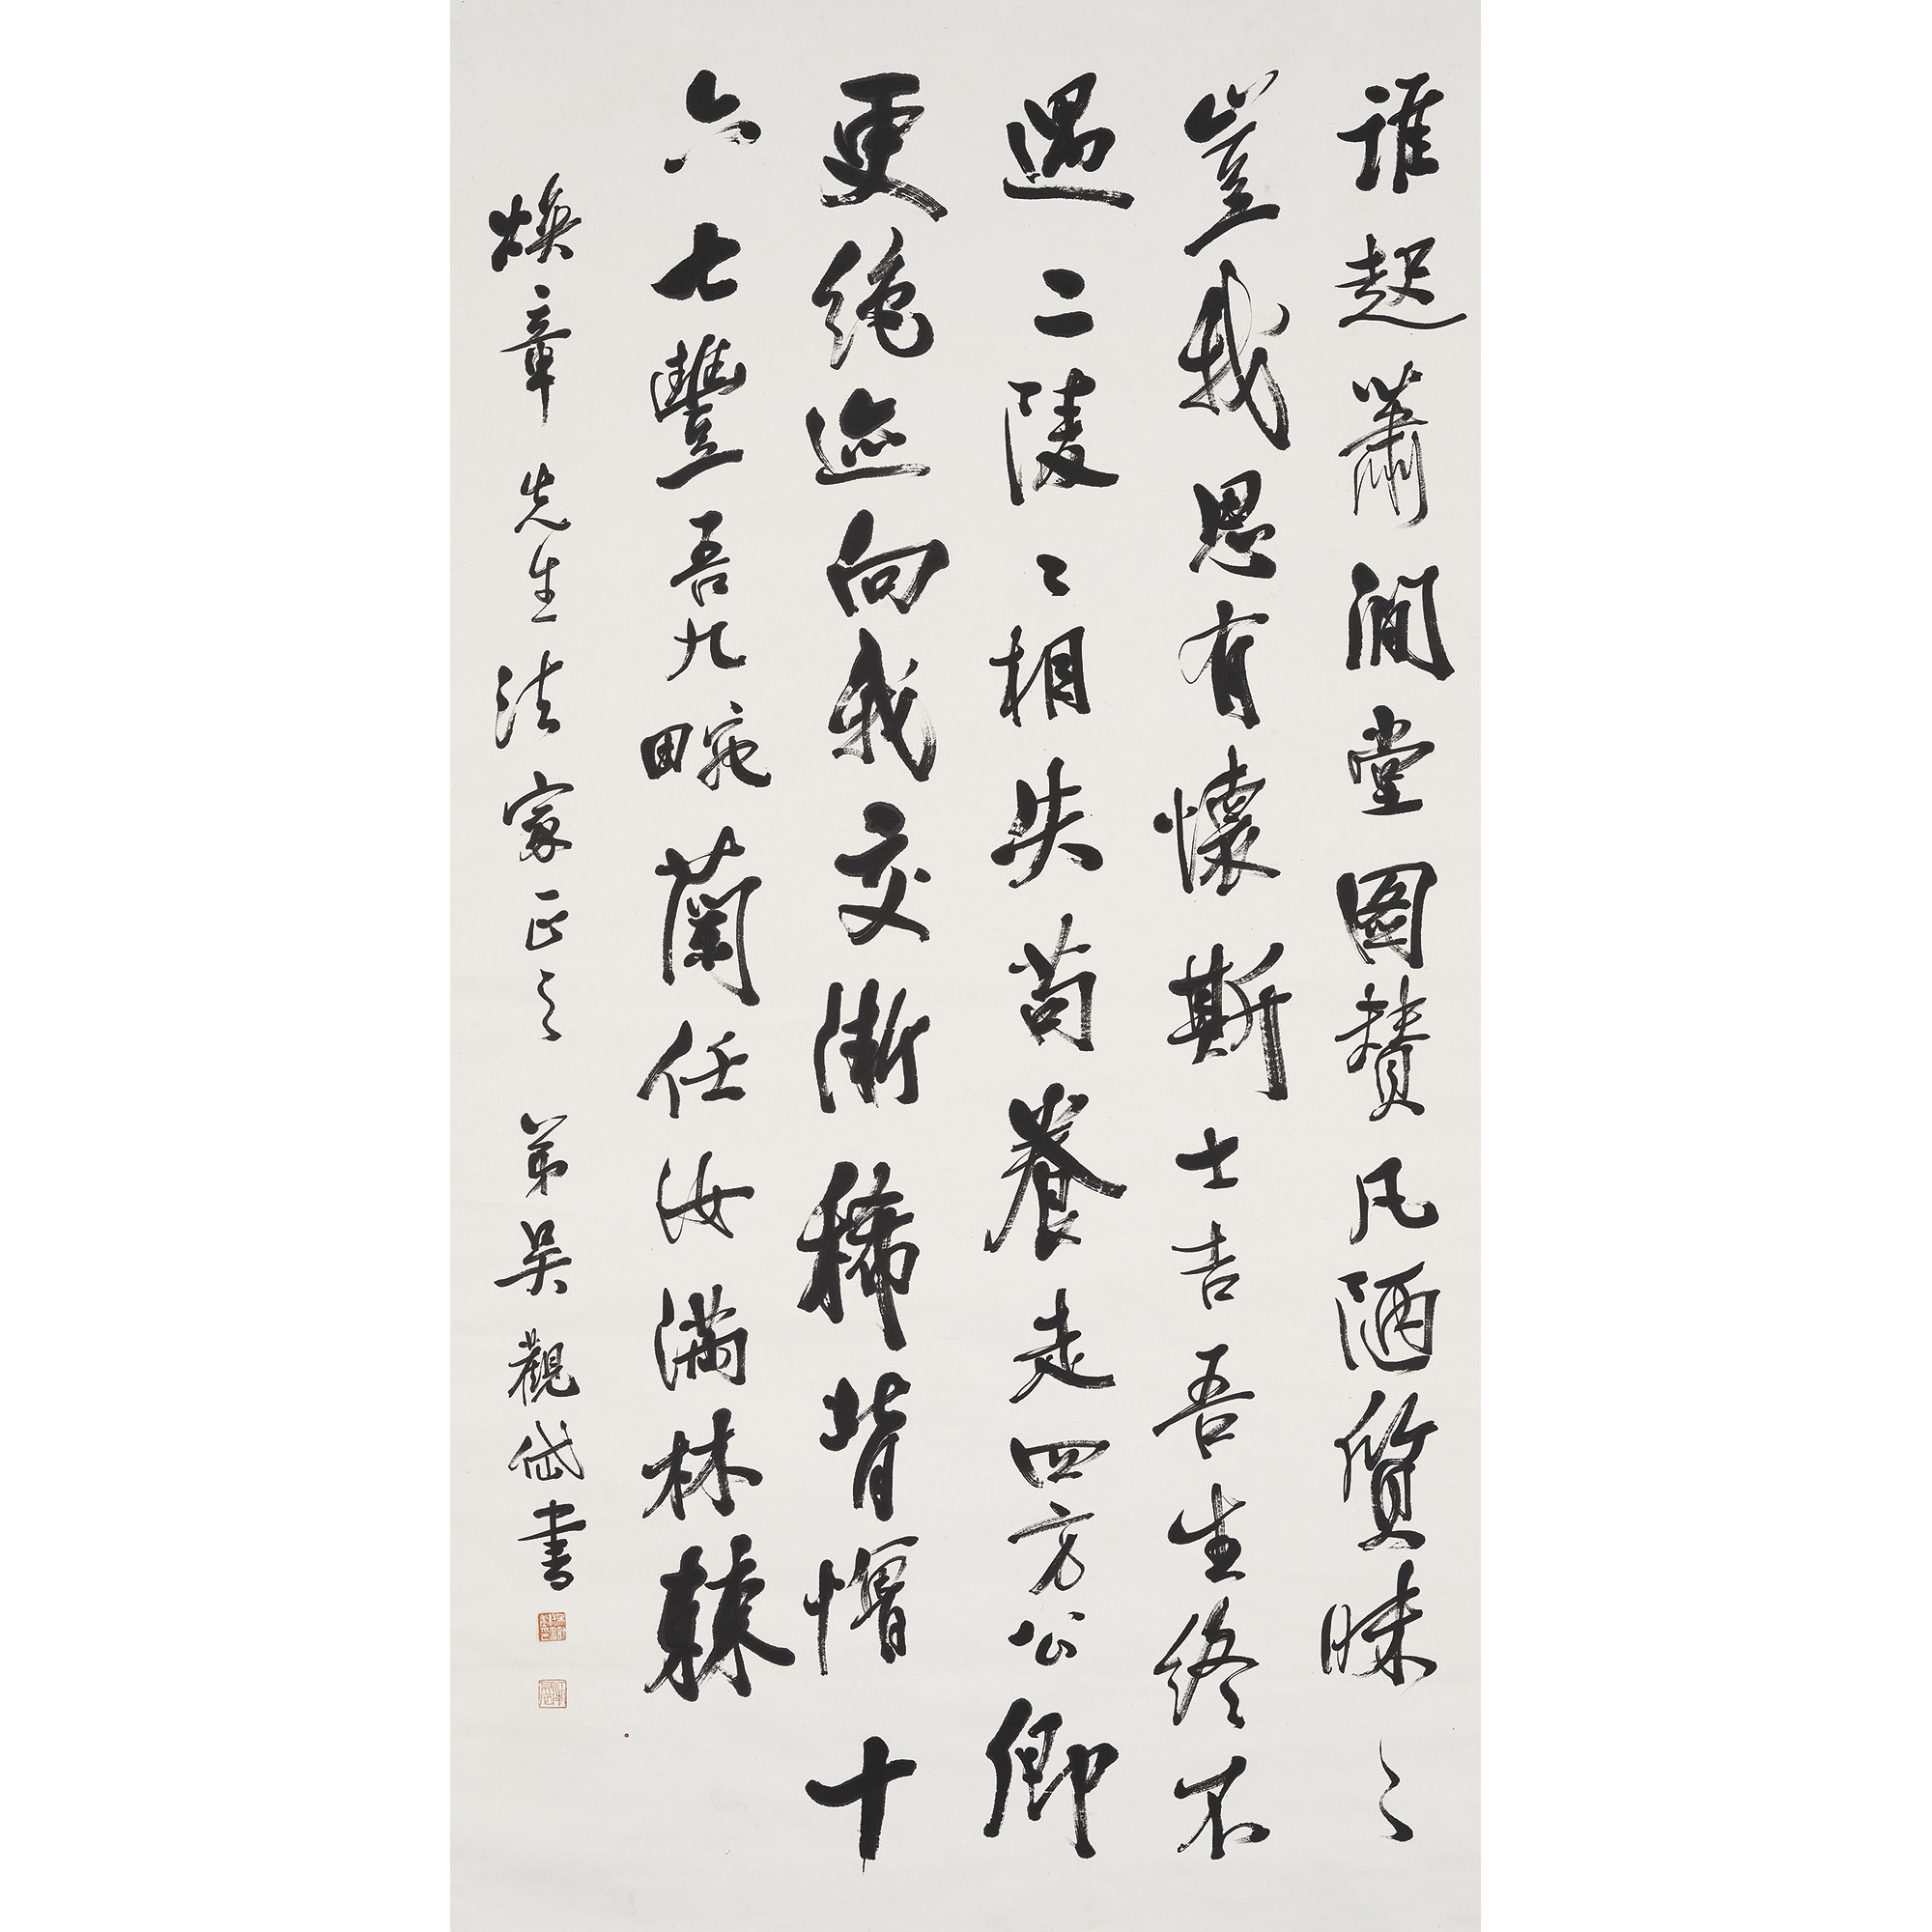 誰起蕭閒堂圖贊凡陋質昧〻
豈我思有懷斯士吉吾生終不
遇二陵〻相失苟養走四方公卿
更絕迹向我交漸稀背憎十
六七豐吾九畹蘭任汝滿林棘
煥章先生法家正之 弟吳觀岱書